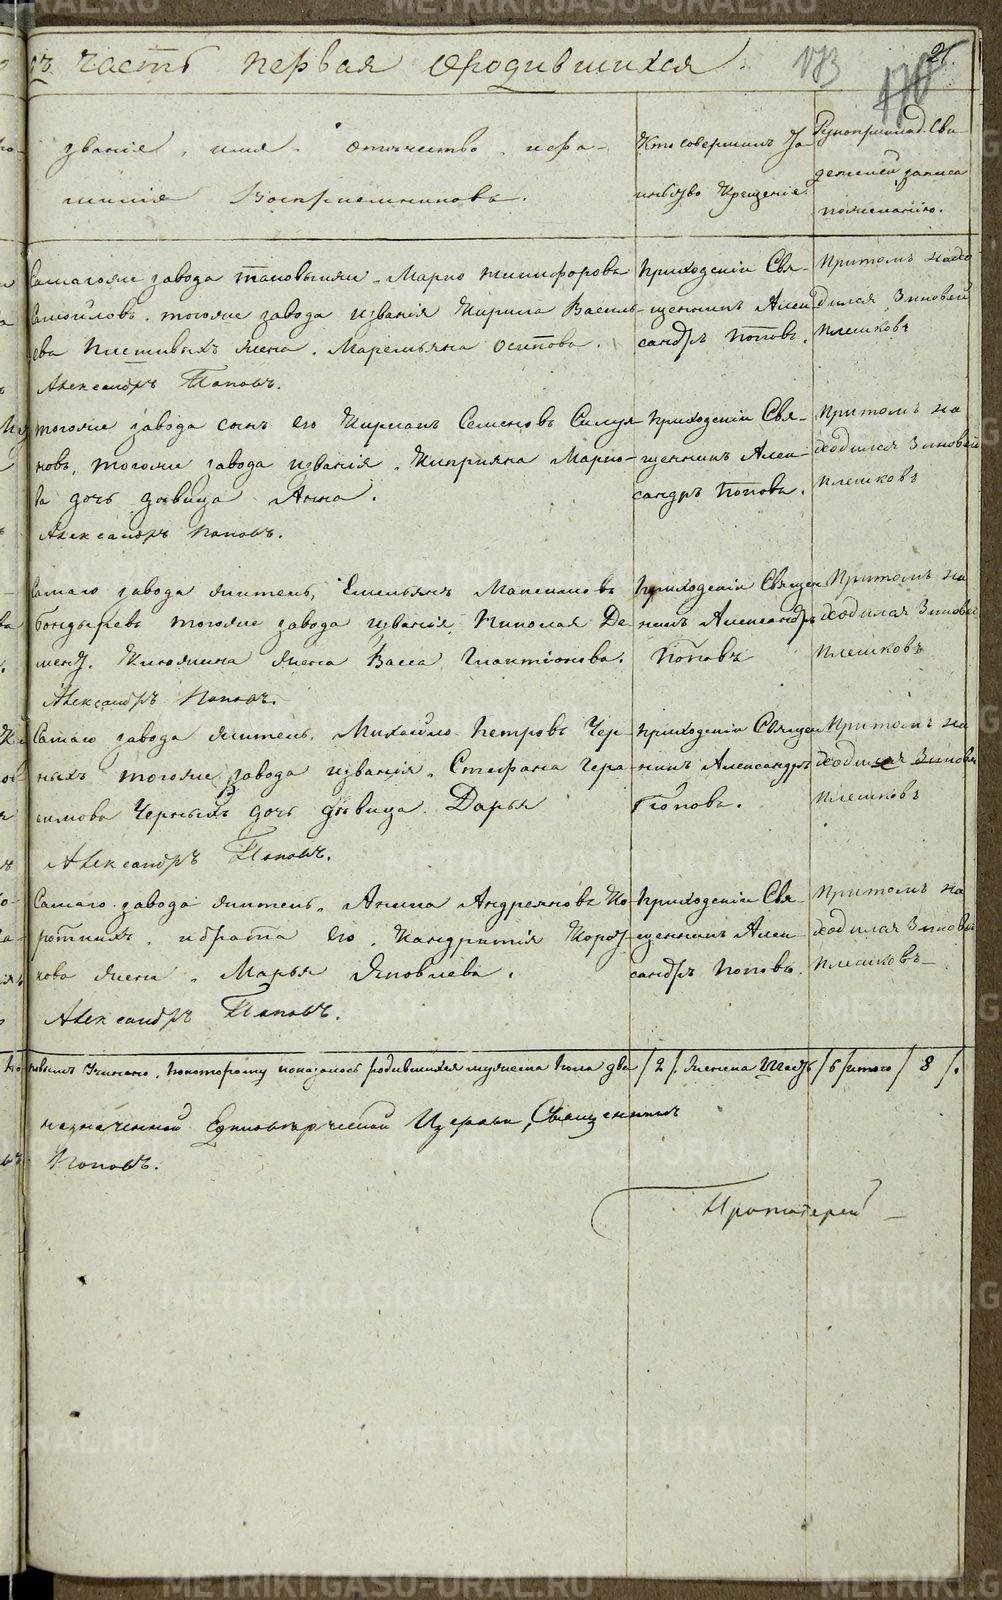 часть первая о родившихся. 173 21.
званіе, имя, отчество и фа-
милія Воспріемниковъ.
Кто совершилъ Та-
инство Крещенія.
Рукоприклад. Сви-
детелей записа
по желанію.
Самагоже завода
Самойловъ. тогоже завода Кирила Василь-
ева жена. Маремьяна Осипова.
Александръ Поповъ.
Приходскій Свя-
щенникъ Алек-
сандръ Поповъ.
Притомъ нахо
дился Зиновей
Плешковъ
тогоже завода сынъ его Семеновъ Силуя-
новъ, тогоже завода Киприяна Марко-
ва дочь девица Анна.
Александръ Поповъ.
Приходскій Свя-
щенникъ Алек-
сандръ Поповъ.
Притомъ на
ходился Зиновей
Плешковъ
Самаго завода житель, Емельянъ Максимовъ
Бондыревъ тогоже завода Николая Де
жена Васса
Александръ Поповъ.
Приходскій Священ
никъ Александръ
Поповъ
Притомъ на
ходился Зиновей
Плешковъ
Самаго завода житель, Михайло Петровъ Чер-
ныхъ тогоже завода Стефана Гера-
симова Черныхъ дочь девица Дарья
Александръ Поповъ.
Приходскій Священ
никъ Александръ
Поповъ.
Притомъ на
ходился Зиновей
Плешковъ
Самаго завода житель, Андреяновъ Ко-
роткихъ, и брата его, Кандратія Корот-
кова жена, Марья Яковлева.
Александръ Поповъ.
Приходскій Свя-
щенникъ Алек-
сандръ Поповъ.
Притомъ на
ходился Зиновей
Плешковъ
по которому показалось родившихся мужеска пола два /2/. Женска шесть /6/ итого /8/.
назначенной Единоверческой Церкви, Священникъ
Поповъ.
Протоіерей
METRIKI.GASO-URAL.RU